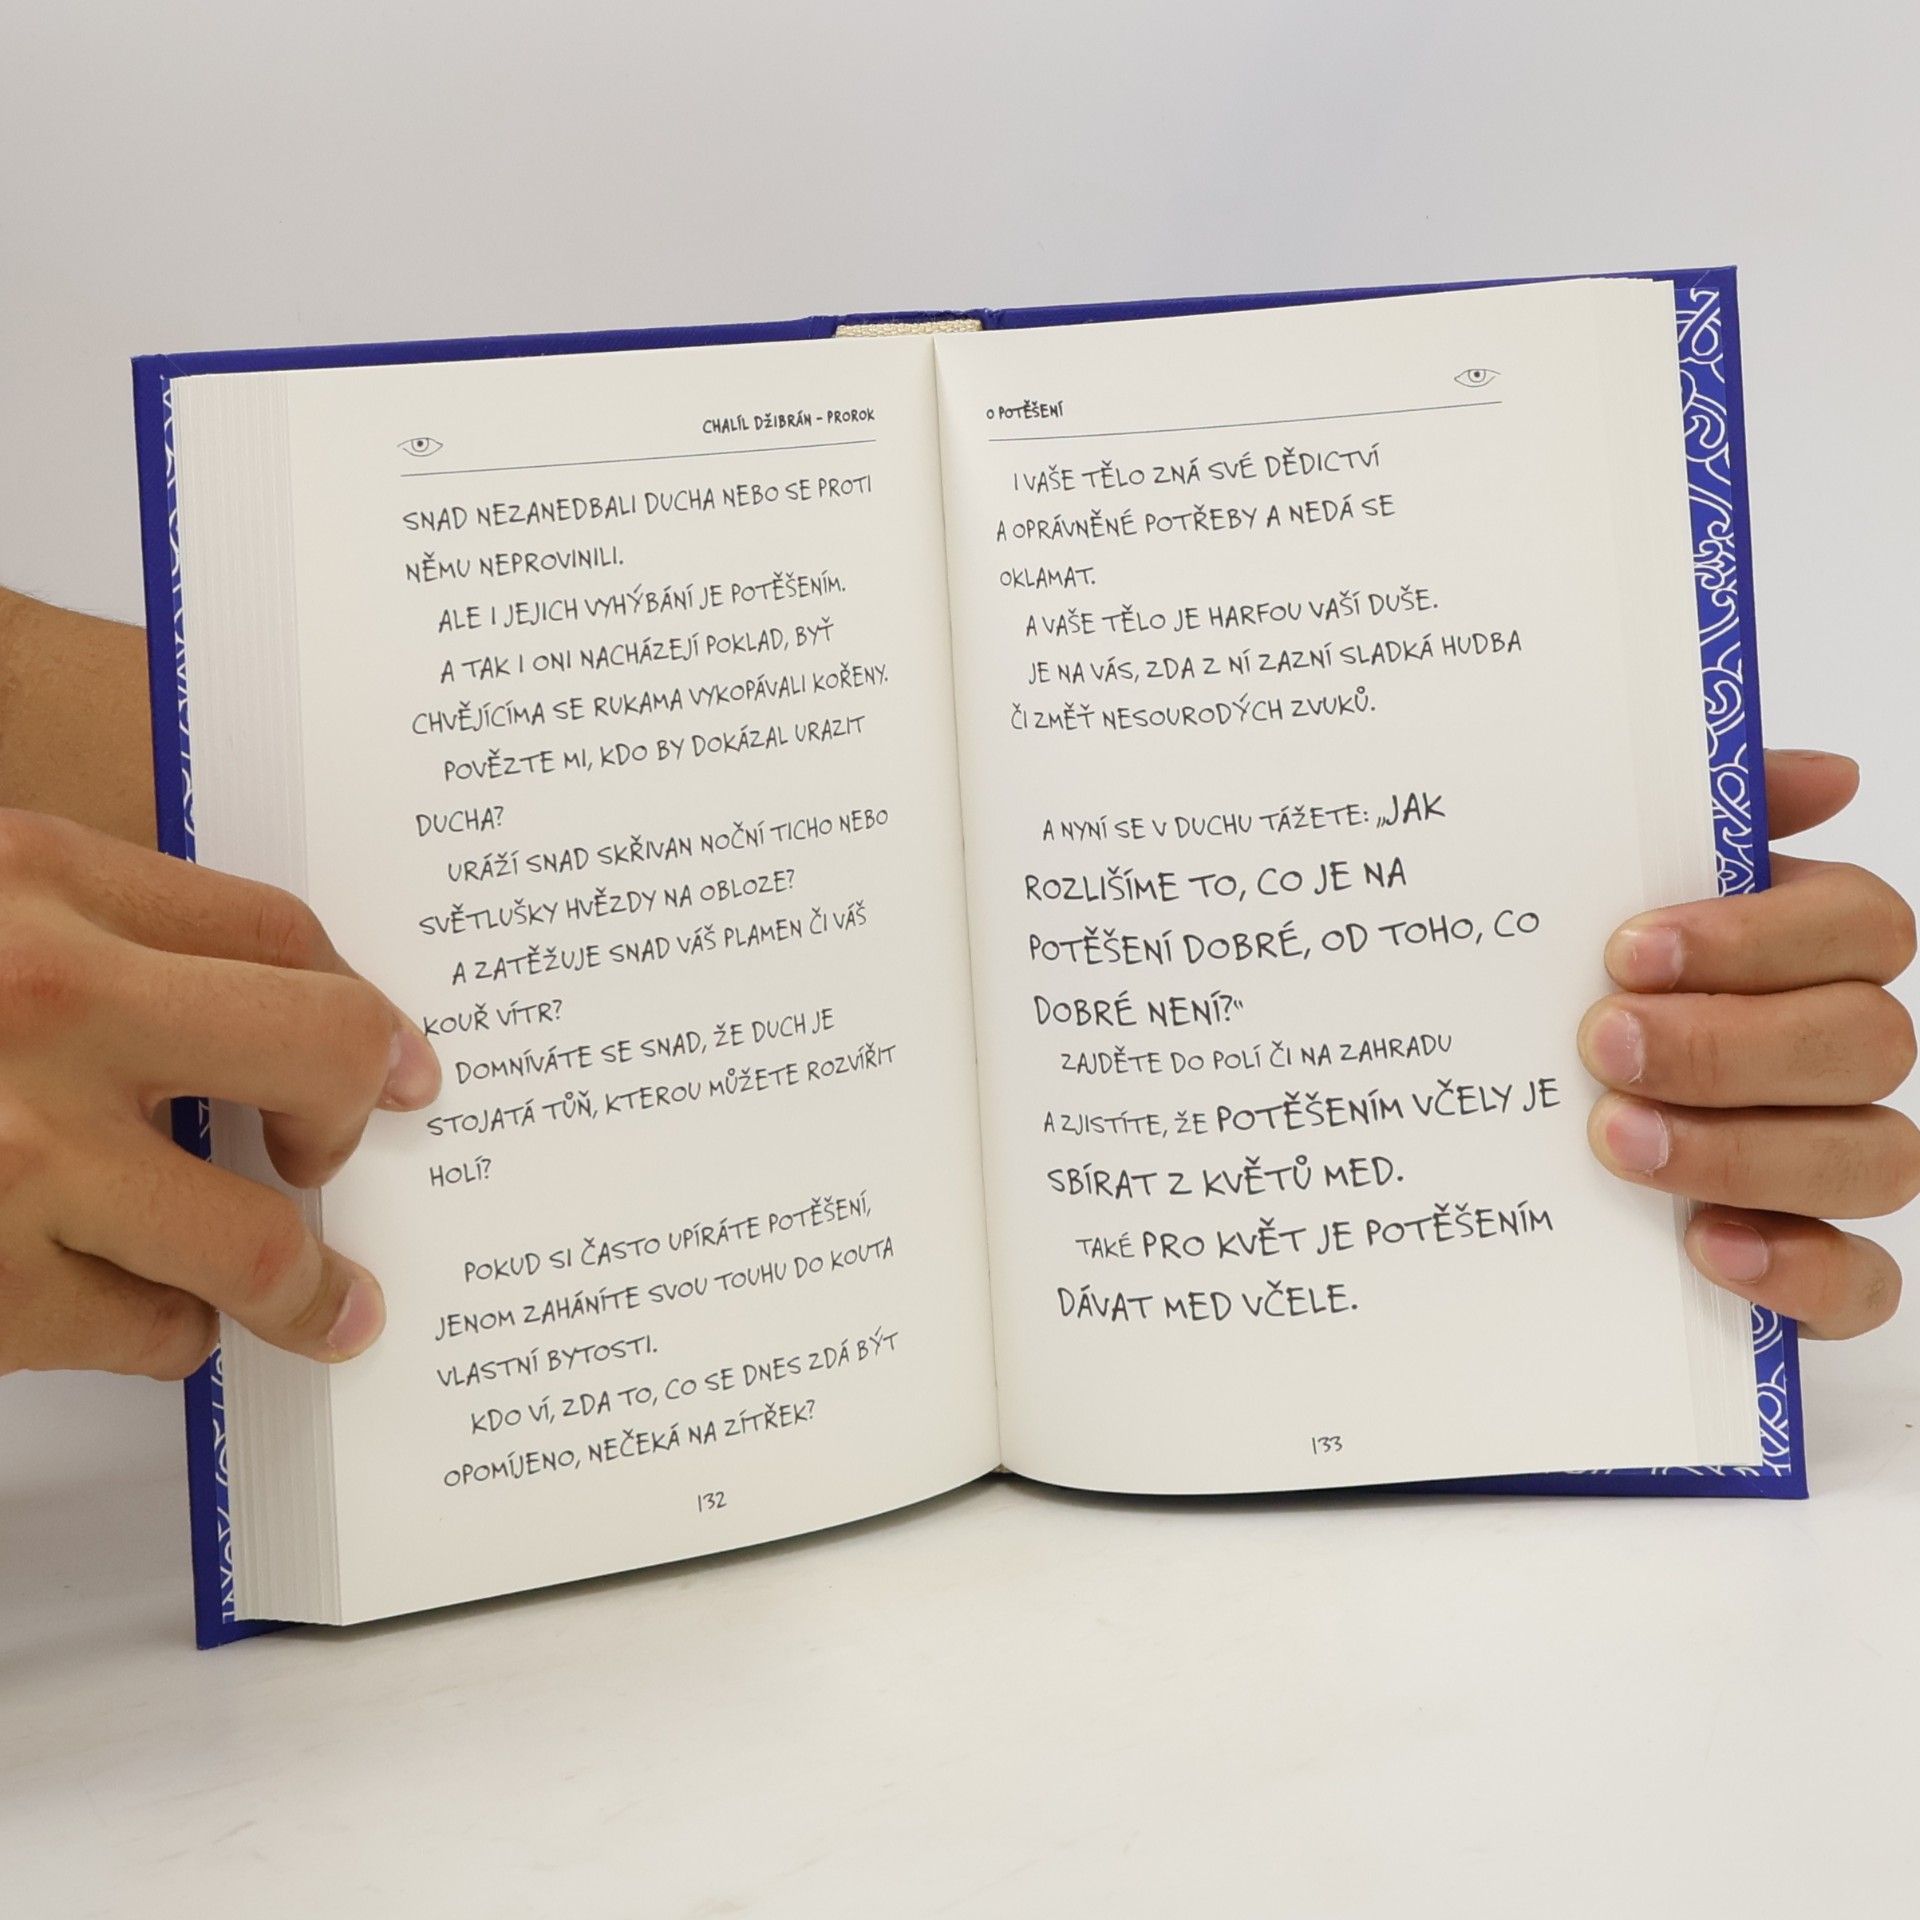 CHALÍL DŽIBRÁN – PROROK
SNAD NEZANEDBALI DUCHA NEBO SE PROTI
NĚMU NEPROVINILI.
ALE I JEJICH VYHÝBÁNÍ JE POTĚŠENÍM.
A TAK I ONI NACHÁZEJÍ POKLAD, BYŤ
CHVĚJÍCÍMA SE RUKAMA VYKOPÁVALI KOŘENY.
POVĚZTE MI, KDO BY DOKÁZAL URAZIT
DUCHA?
URÁŽÍ SNAD SKŘIVAN NOČNÍ TICHO NEBO
SVĚTLUŠKY HVĚZDY NA OBLOZE?
A ZATĚŽUJE SNAD VÁŠ PLAMEN ČI VÁŠ
KOUŘ VÍTR?
DOMNÍVÁTE SE SNAD, ŽE DUCH JE
STOJATÁ TŮŇ, KTEROU MŮŽETE ROZVÍŘIT
HOLÍ?
POKUD SI ČASTO UPÍRÁTE POTĚŠENÍ,
JENOM ZAHÁNÍTE SVOU TOUHU DO KOUTA
VLASTNÍ BYTOSTI.
KDO VÍ, ZDA TO, CO SE DNES ZDÁ BÝT
OPOMÍJENO, NEČEKÁ NA ZÍTŘEK?
132
O POTĚŠENÍ
I VAŠE TĚLO ZNÁ SVÉ DĚDICTVÍ
A OPRÁVNĚNÉ POTŘEBY A NEDÁ SE
OKLAMAT.
A VAŠE TĚLO JE HARFOU VAŠÍ DUŠE.
JE NA VÁS, ZDA Z NÍ ZAZNÍ SLADKÁ HUDBA
ČI ZMĚŤ NESOURODÝCH ZVUKŮ.
A NYNÍ SE V DUCHU TÁŽETE: „JAK
ROZLIŠÍME TO, CO JE NA
POTĚŠENÍ DOBRÉ, OD TOHO, CO
DOBRÉ NENÍ?“
ZAJDĚTE DO POLÍ ČI NA ZAHRADU
A ZJISTÍTE, ŽE POTĚŠENÍM VČELY JE
SBÍRAT Z KVĚTŮ MED.
TAKÉ PRO KVĚT JE POTĚŠENÍM
DÁVAT MED VČELE.
133